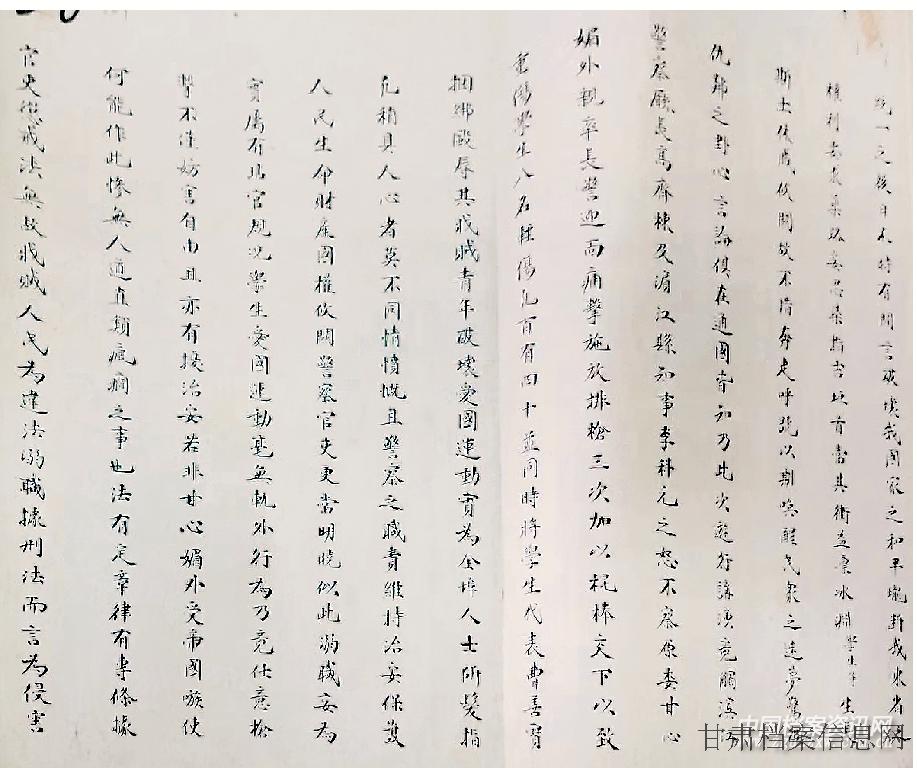 統一之後日本時有間言破壞我國家之和平壟斷我東省之
權利
斯土休戚攸關故不惜奔走呼號以期喚醒民衆之迷夢驚
仇鄰之野心言論俱在通國皆知乃此次遊行講演竟觸濱江
警察廳長高齊棟及濱江縣知事李科元之怒不察原委甘心
媚外親率長警迎面痛擊施放排槍三次加以棍棒交下以致
重傷學生八名輕傷九百有四十並同時將學生代表曹善寶
捆綁毆辱其戕賊青年破壞愛國運動實為全埠人士所髮指
凡稍具人心者莫不同情憤慨且警察之職責維持治安保護
人民生命財產國權攸關警察官吏更當明曉似此溺職妄為
實屬有玷官規况學生愛國運動毫無軌外行為乃竟任意槍
擊不僅妨害自由且亦有擾治安若非甘心媚外受帝國嗾使
何能作此慘無人道直類瘋癲之事也法有定章律有專條據
官吏懲戒法無故戕賊人民為違法溺職據刑法而言為侵害
中国档案资讯网
甘肃档案信息网